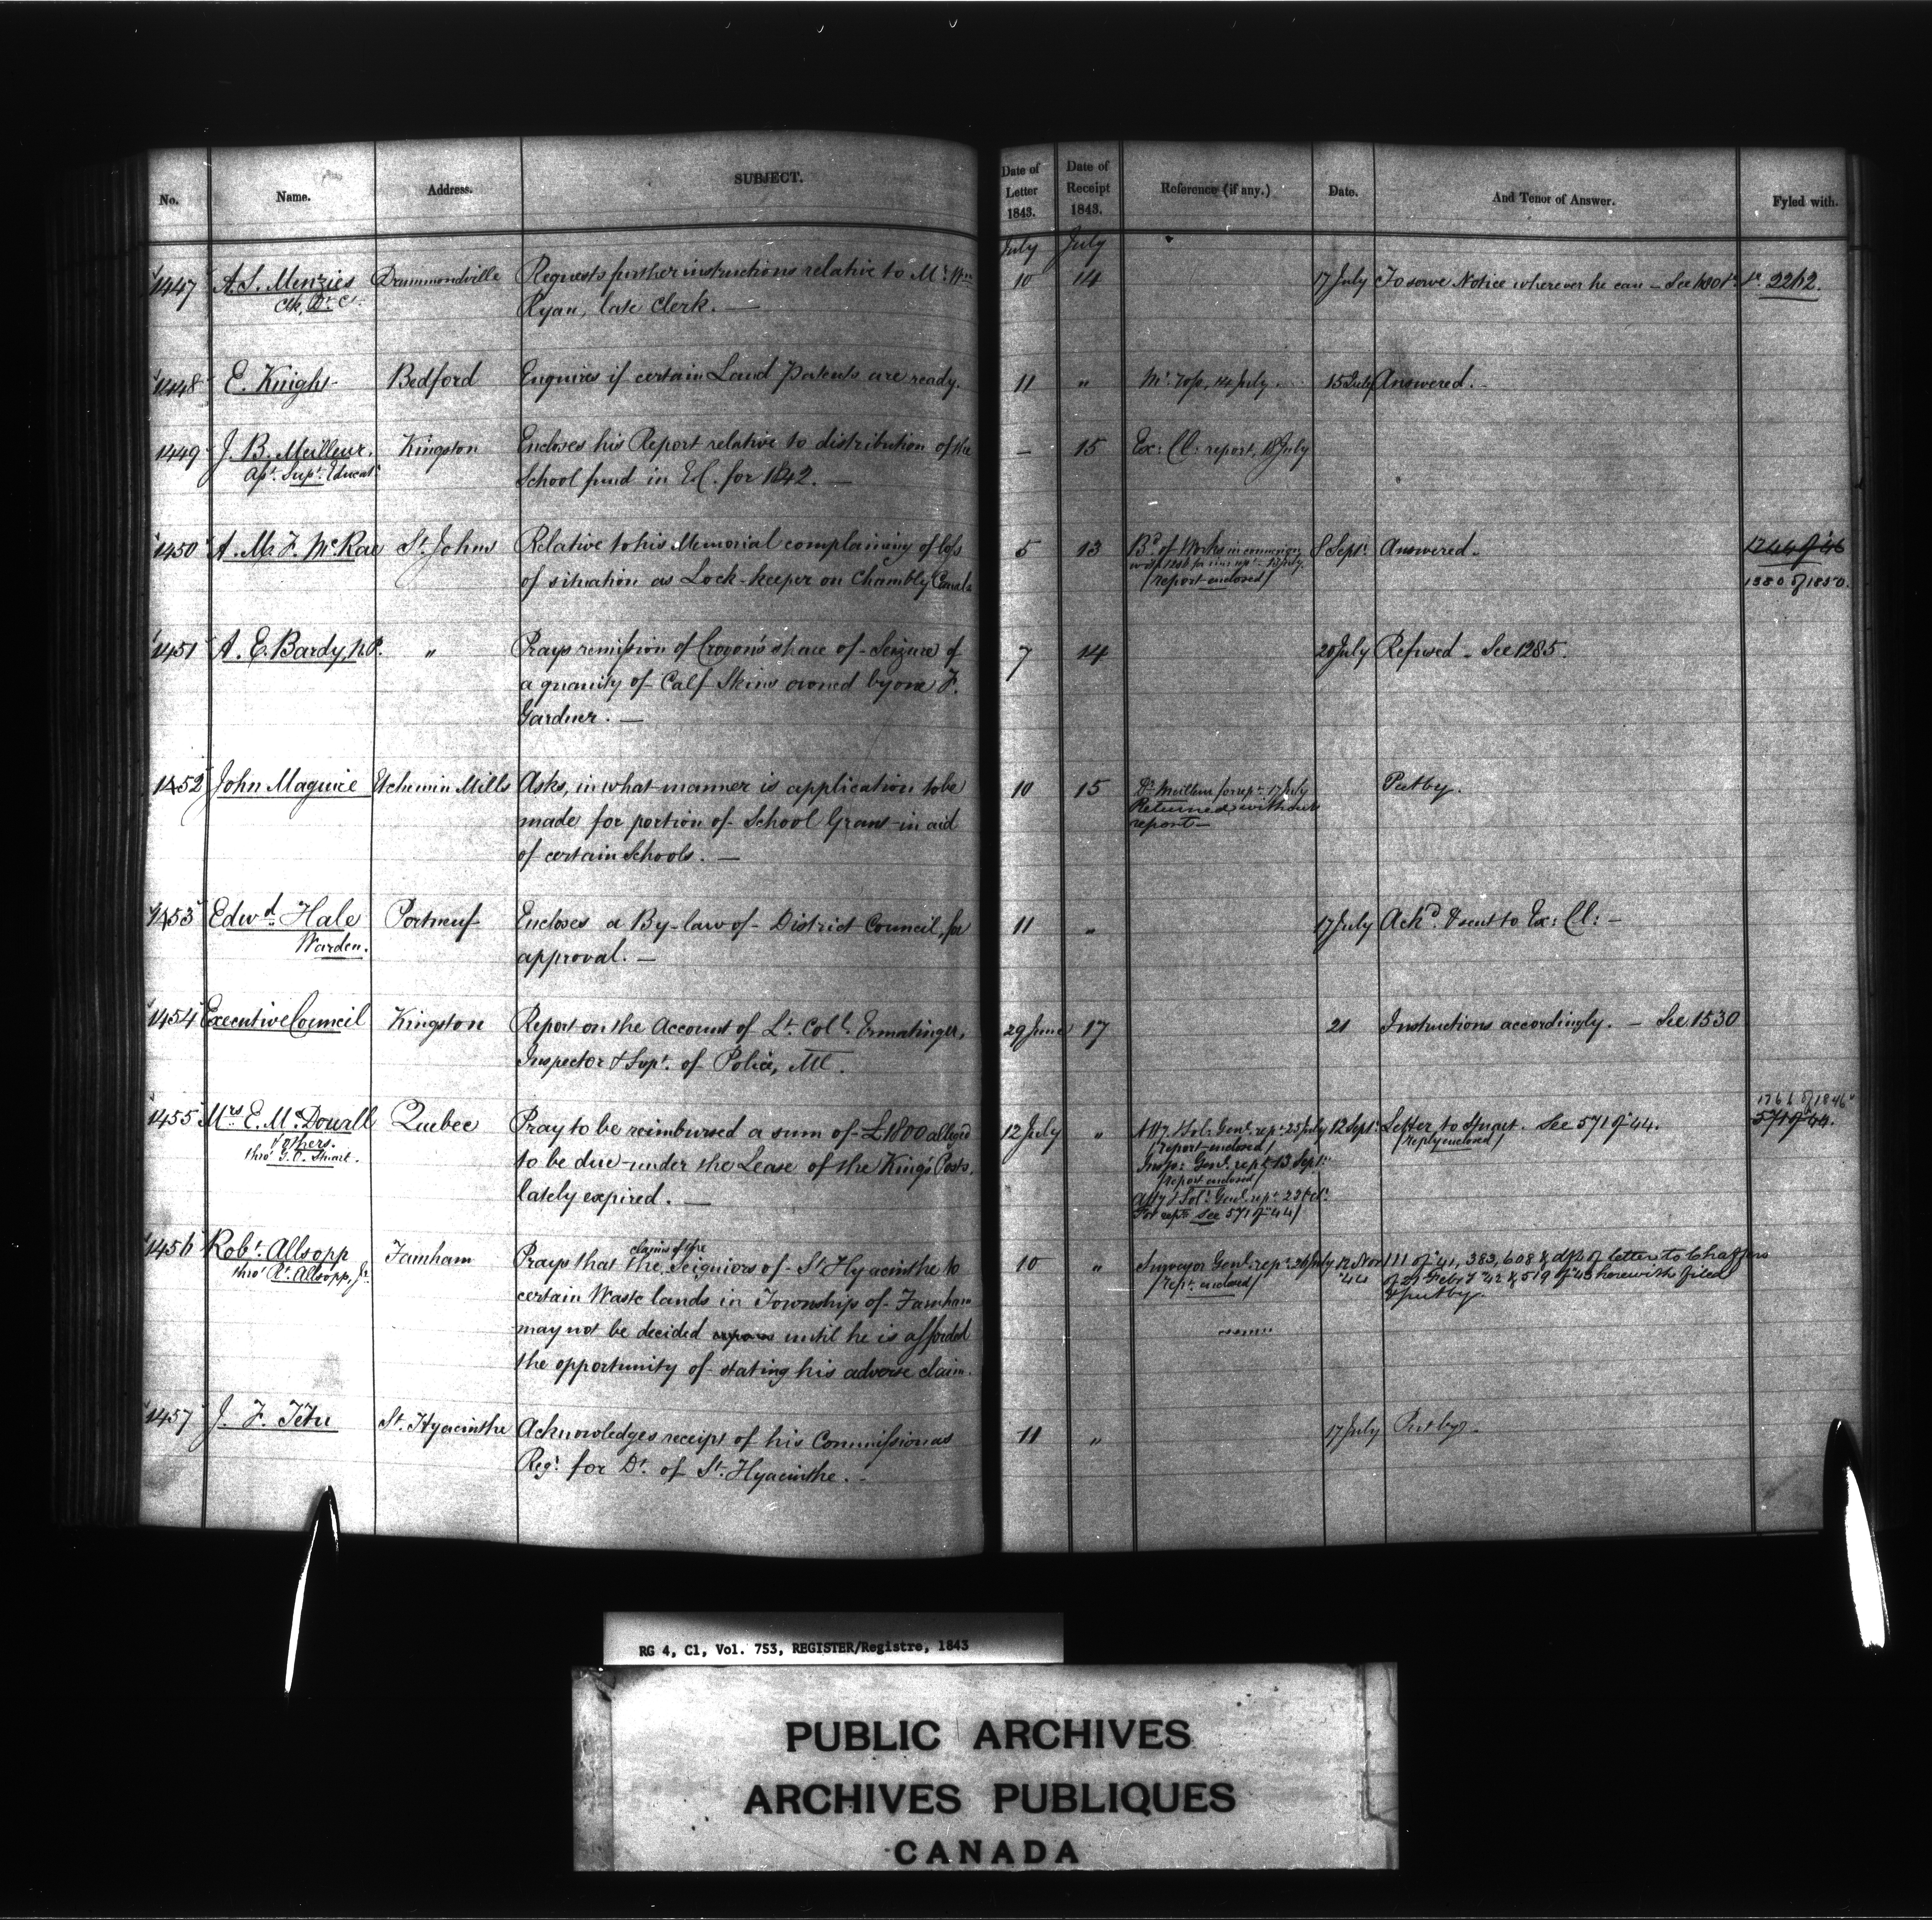 No. Name. Address. SUBJECT. Date of Letter 1843. Date of Receipt 1843. Reference (if any.) Date. And Tenor of Answer. Fyled with.
July July
1447 A. S. Menzies Drummondville Requests further instructions relative to Mr. Wm 10 14 17 July To serve Notice wherever he can - See 2262.
Clk, Dt. Cl. Ryan, late Clerk. —
1448 E. Knight Bedford Enquires if certain Land Patents are ready. 11 " 14 July 15 July Answered. -
1449 J. B. Meilleur. Kingston Encloses his Report relative to distribution of the — 15 Ex: Cl: report, 18 July
Supt. Educat School fund in E.C. for 1842. —
1450 A. McRae St. Johns Relative to his Memorial complaining of loss 5 13 Bd of Works 8 Sept. Answered - 1266 of 46
of situation as Lock-keeper on Chambly Canal. /report enclosed/ 1380 of 1850.
1451 A. E. Bardy, N.P. " Prays remission of Crown's share of Seizure of 7 14 20 July Refused - See 1285.
a quantity of Calf Skins owned by one F.
Gardner. —
1452 John Maguire Etchemin Mills Asks, in what manner is application to be 10 15 Dr Meilleur for rept. 17 July Put by.
made for portion of School Grant in aid Returned without
of certain Schools. — report —
1453 Edwd. Hale Portneuf Encloses a By-law of District Council, for 11 " 17 July Ackd. & sent to Ex: Cl: -
Warden. approval. —
1454 Executive Council Kingston Report on the Account of Lt. Coll. Ermatinger, 29 June 17 21 Instructions accordingly. - See 1530
Inspector & Supt. of Police, Ml.
1455 Mrs. E. McDouall Quebec Pray to be reimbursed a sum of £1800 alleged 12 July " Atty & Sol: Genl. rept. 25 July 12 Sept. Letter to Stuart. See 571 of 44. 571 of 44.
& others. /report enclosed/ /reply enclosed/
thro' G.O. Stuart. to be due under the Lease of the King's Posts, Inspr: Genl. rept. 13 Sept.
/report enclosed/
lately expired. — Atty & Sol: Genl. rept. 23 Oct.
For rept. see 571 of 44/
1456 Robt. Allsopp Farnham Prays that the claims of the Seigniors of St Hyacinthe to 10 " Surveyor Genl. rept. 26 July 12 Nov 111 of 41, 383, 608 & dft. of letter to Chaffers
thro' Rt. Allsopp, Jr. certain Waste lands in Townships of Farnham /rept. enclosed/ '44 of 27 Feby '42 & 519 of 43 herewith filed
& put by.
may not be decided until he is afforded
the opportunity of stating his adverse claim.
1457 J. F. Têtu St. Hyacinthe Acknowledges receipt of his Commission as 11 " 17 July Put by.
Regr. for Dt. of St. Hyacinthe. -
RG 4, C1, Vol. 753, REGISTER/Registre, 1843
PUBLIC ARCHIVES
ARCHIVES PUBLIQUES
CANADA